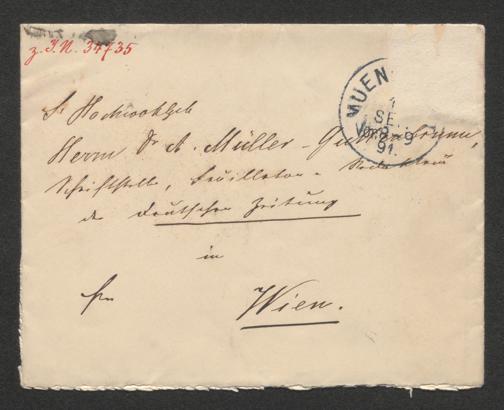 z. I.N. 34735
MUEN
1
SE
Vor. 8-9
91.
Sr Hochwohlgeb
Herrn Dr A. Müller-Guttenbrunn,
Schriftstelle, Feuilleton-Redakteur
der Deutschen Zeitung
in
Wien.